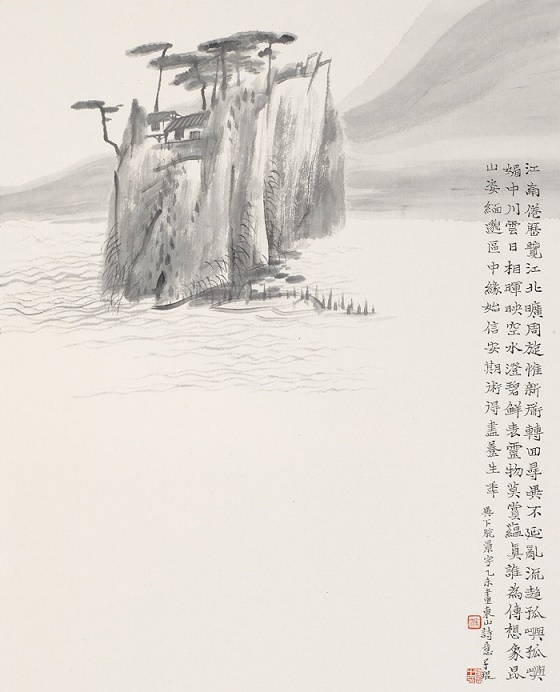 江南倦歷覽江北曠周旋惟新衜轉回尋異不延亂流趍孤嶼孤嶼
媚中川雲日相暉映空水澄碧鮮表靈物莫賞蘊真誰為傳想象昆
山姿緬邈區中緣始信安期術得盡養生秊 景宇乙未畫東山詩意